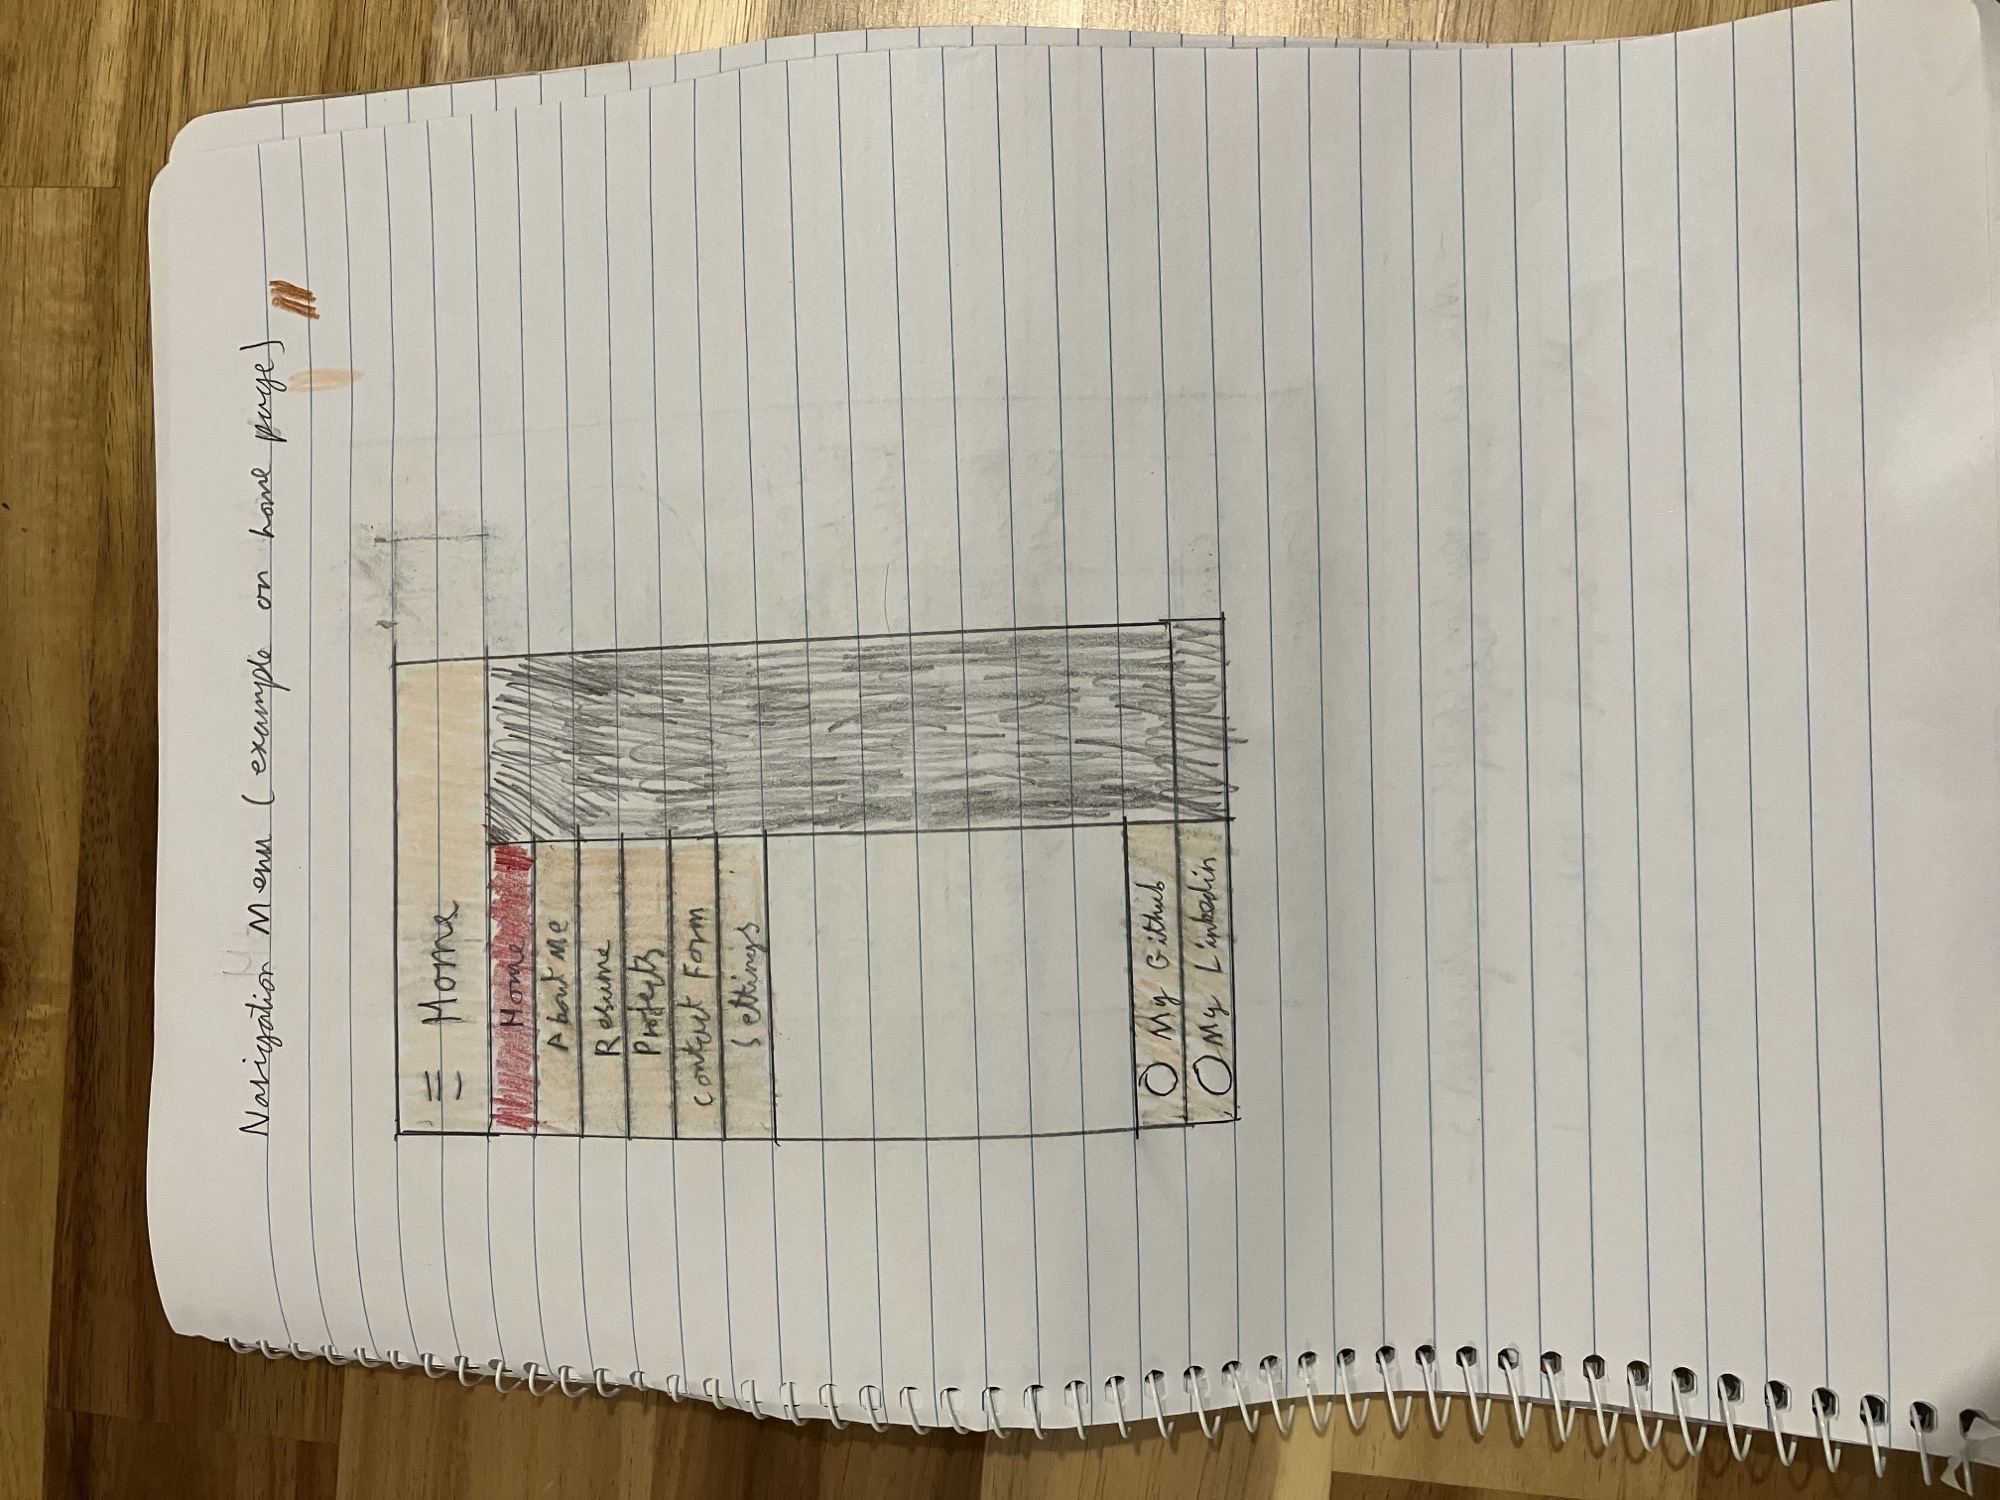 Navigation Menu (example on home page)
Home
Home
About Me
Resume
Projects
Contact Form
Settings
My Github
My Linkedin